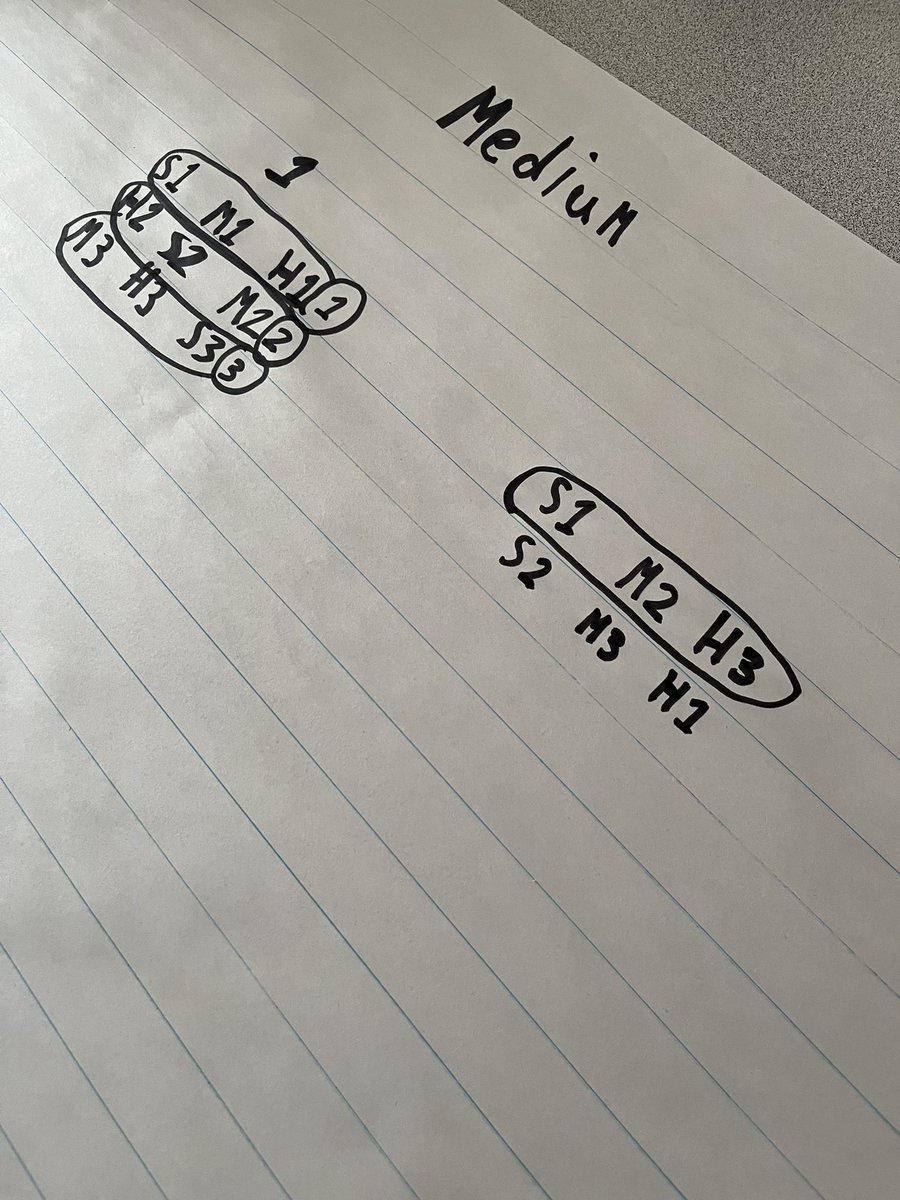 Medium
1
S1 M1 H1 1
H2 S2 M2 2
M3 H3 S3 3
S1 M2 H3
S2 M3 H1